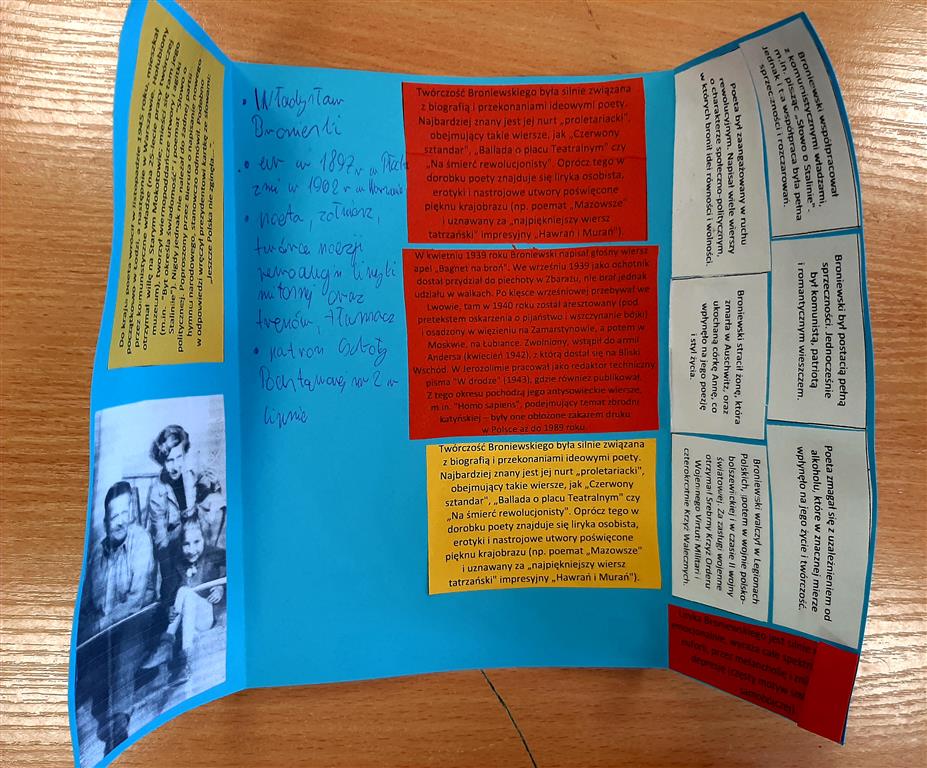 Do kraju poeta wrócił w listopadzie 1945 roku, mieszkał
początkowo w Łodzi, a następnie w Warszawie. Hołubiony
przez komunistyczne władze (na 25-lecie pracy twórczej
otrzymał willę na Starym Mokotowie, mieści się tam jego
muzeum), tworzył wiernopoddańcze utwory i agitki
(m.in. "Byt określa świadomość" i poemat "Słowo o
Stalinie"). Nigdy jednak nie należał do żadnej partii
politycznej. Poproszony przez Bieruta o napisanie nowego
hymnu narodowego, stanowczo odmówił, po namowach
w odpowiedzi wręczył prezydentowi kartkę ze słowami:
„Jeszcze Polska nie zginęła...".
• Władysław
Broniewski
• ur w 1897 r w Płock
zm w 1962 r w Warszawie
• poeta, żołnierz,
twórca poezji
rewolucyjnej liryki
miłosnej oraz
trenów, tłumacz
• patron Szkoły
Podstawowej nr 2 w
Twórczość Broniewskiego była silnie związana
z biografią i przekonaniami ideowymi poety.
Najbardziej znany jest jej nurt „proletariacki",
obejmujący takie wiersze, jak „Czerwony
sztandar", „Ballada o placu Teatralnym" czy
„Na śmierć rewolucjonisty". Oprócz tego w
dorobku poety znajduje się liryka osobista,
erotyki i nastrojowe utwory poświęcone
pięknu krajobrazu (np. poemat "Mazowsze"
i uznawany za „najpiękniejszy wiersz
tatrzański" impresyjny „Hawrań i Murań").
W kwietniu 1939 roku Broniewski napisał głośny wiersz
apel „Bagnet na broń". We wrześniu 1939 jako ochotnik
dostał przydział do piechoty w Zbarażu, nie brał jednak
udziału w walkach. Po klęsce wrześniowej przebywał we
Lwowie, tam w 1940 roku został aresztowany (pod
pretekstem oskarżenia o pijaństwo i wszczynanie bójki)
i osadzony w więzieniu na Zamarstynowie, a potem w
Moskwie, na Łubiance. Zwolniony, wstąpił do armii
Andersa (kwiecień 1942), z którą dostał się na Bliski
Wschód. W Jerozolimie pracował jako redaktor techniczny
pisma "W drodze" (1943), gdzie również publikował.
Z tego okresu pochodzą jego antysowieckie wiersze,
m.in. "Homo sapiens", podejmujący temat zbrodni
katyńskiej – były one obłożone zakazem druku
w Polsce aż do 1989 roku.
Twórczość Broniewskiego była silnie związana
z biografią i przekonaniami ideowymi poety.
Najbardziej znany jest jej nurt „proletariacki",
obejmujący takie wiersze, jak „Czerwony
sztandar", „Ballada o placu Teatralnym" czy
„Na śmierć rewolucjonisty". Oprócz tego w
dorobku poety znajduje się liryka osobista,
erotyki i nastrojowe utwory poświęcone
pięknu krajobrazu (np. poemat "Mazowsze"
i uznawany za „najpiękniejszy wiersz
tatrzański" impresyjny „Hawrań i Murań").
Broniewski współpracował
z komunistycznymi władzami,
m.in. pisząc „Słowo o Stalinie".
Jednak i ta współpraca była pełna
sprzeczności i rozczarowań.
Poeta był zaangażowany w ruchu
rewolucyjnym. Napisał wiele wierszy
o charakterze społeczno-politycznym,
w których bronił idei równości i wolności.
Broniewski był postacią pełną
sprzeczności. Jednocześnie
był komunistą, patriotą
i romantycznym wieszczem.
Broniewski stracił żonę, która
zmarła w Auschwitz, oraz
ukochaną córkę Annę, co
wpłynęło na jego poezję
i styl życia.
Poeta zmagał się z uzależnieniem od
alkoholu, które w znacznej mierze
wpłynęło na jego życie i twórczość.
Broniewski walczył w Legionach
Polskich, potem w wojnie polsko-
bolszewickiej i w czasie II wojny
światowej. Za zasługi wojenne
otrzymał Srebrny Krzyż Orderu
Wojennego Virtuti Militari i
czterokrotnie Krzyż Walecznych.
Liryka Broniewskiego jest silnie
emocjonalnie, wyraża całe spektrum
euforii, przez melancholię i
depresję (częsty motyw
samobójczej).